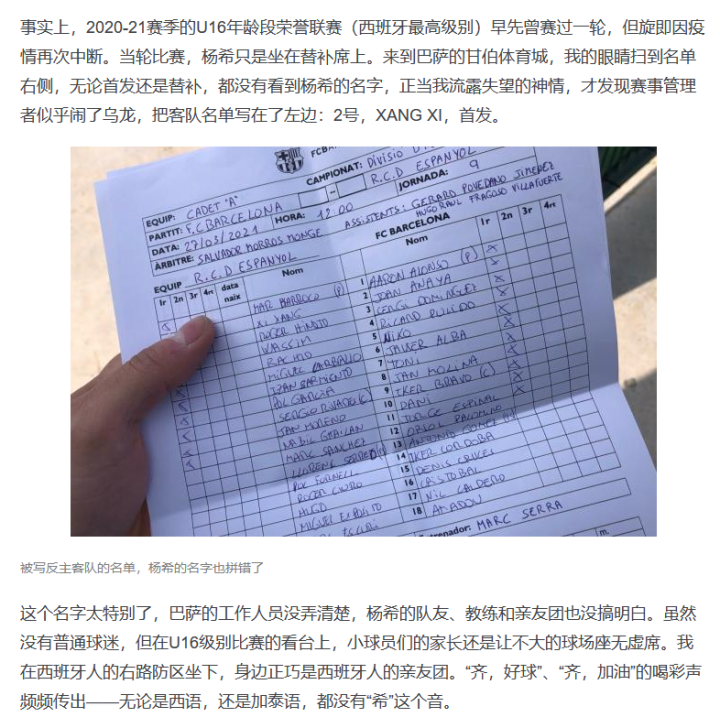 事实上，2020-21赛季的U16年龄段荣誉联赛（西班牙最高级别）早先曾赛过一轮，但旋即因疫
情再次中断。当轮比赛，杨希只是坐在替补席上。来到巴萨的甘伯体育城，我的眼睛扫到名单
右侧，无论首发还是替补，都没有看到杨希的名字，正当我流露失望的神情，才发现赛事管理
者似乎闹了乌龙，把客队名单写在了左边：2号，XANG XI，首发。
FCBA
EQUIP: CADET "A" CAMPIONAT: Divisio
PARTIT: F.C BARCELONA - R.C.D ESPANYOL
DATA: 27/03/2021 HORA: 12:00 JORNADA: 9
ÀRBITRE: SALVADOR MORROS MONGE ASSISTENTS: GERARD POVEDANO JIMENEZ
HUGO RAUL FRAGOSO VILLAFUERTE
EQUIP R.C.D ESPANYOL FC BARCELONA
1r 2n 3r 4rt data naix Nom Nom 1r 2n 3r 4rt
MAR BARROCO (P) 1 AARON ALONSO (P)
XI XANG 2 JOAN ANAYA
ROGER HINOJO 3 SERGI DOMINGUEZ
WASSIM 4 RICARD PUJOL
RACHID 5 NIKO
MIGUEL CARBALLO 6 JAUME ALBA
JOAN SARMIENTO 7 TONI
POL GARCIA 8 JAN MOLINA
SERGIO RIVARES (C) 9 IKER BRAVO (C)
JAN MORENO 10 DANI
NABIL 11 JORGE ESPINAL
MARC SANCHEZ 12 ORIOL PALOMINO
LLORENS SERRED 13 ANTONIO GOMEZ
POL FORNELL 14 IKER CORDOBA
ROGER 15 DENIS CRUCES
HUGO 16 CRISTOBAL
MIGUEL EXPOSITO 17 NIL CALDERO
18 AMADOU
MARC SERRA
被写反主客队的名单，杨希的名字也拼错了
这个名字太特别了，巴萨的工作人员没弄清楚，杨希的队友、教练和亲友团也没搞明白。虽然
没有普通球迷，但在U16级别比赛的看台上，小球员们的家长还是让不大的球场座无虚席。我
在西班牙人的右路防区坐下，身边正巧是西班牙人的亲友团。“齐，好球”、“齐，加油”的喝彩声
频频传出——无论是西语，还是加泰语，都没有“希”这个音。